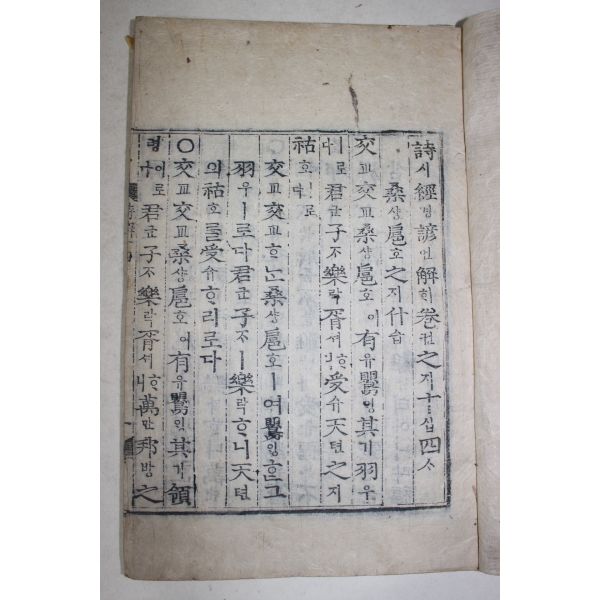 詩시經경諺언解ᄒᆡ卷권之지十십四ᄉᆞ
桑상扈호之지什습
交교交교桑상扈호이有유鸎ᄋᆡᆼ其기羽우
ㅣ로다君군子ᄌᆞ樂락胥셔ᄒᆞ受슈天텬之지
祜호ㅣ로다
○交교交교ᄒᆞᆫ桑상扈호ㅣ여鸎ᄋᆡᆼᄒᆞᆫ그
羽우ㅣ로다君군子ᄌᆞㅣ樂락ᄒᆞ니天텬
의祜호를受슈ᄒᆞ리로다
○交교交교桑상扈호이有유鸎ᄋᆡᆼ其기領
령이로다君군子ᄌᆞ樂락胥셔ᄒᆞ萬만邦방之